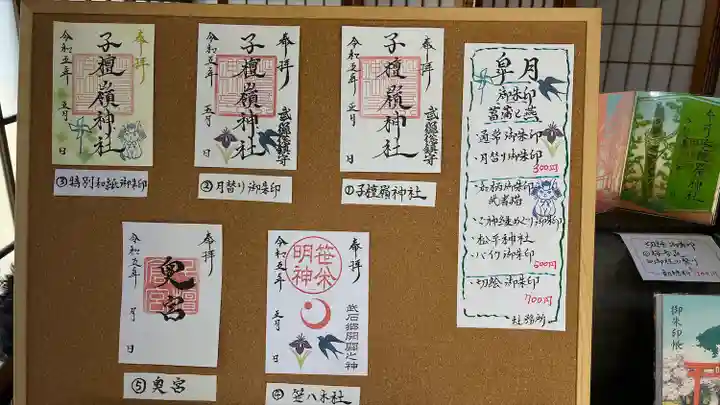 奉拝
子檀嶺神社
令和五年 五月 日
③特別和紙御朱印
奉拝
子檀嶺神社
武石総鎮守
令和五年 五月 日
②月替り御朱印
奉拝
子檀嶺神社
令和五年 五月 日
①子檀嶺神社
奉拝
奥宮
令和五年 月 日
⑤奥宮
奉拝
笹焼明神
武石郷開闢之神
令和五年 五月 日
④
皐月
御朱印
菖蒲と燕
・通常御朱印
・月替り御朱印
300円
・御朱印
武者猫
・松平神社
・バイク御朱印
500円
・切絵御朱印
700円
社務所
子檀嶺神社
御朱印帳